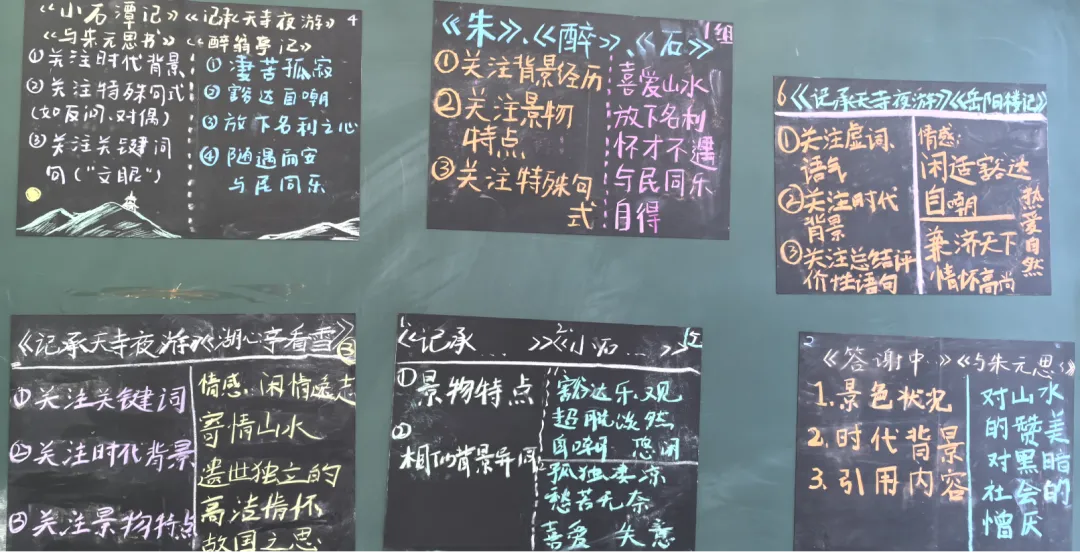 《小石潭记》《记承天寺夜游》 4
《与朱元思书》《醉翁亭记》
①关注时代背景
②关注特殊句式
(如反问、对偶)
③关注关键词
句("文眼")
①凄苦孤寂
②豁达自嘲
③放下名利之心
④随遇而安
与民同乐
《朱》、《醉》、《石》 1组
①关注背景经历
②关注景物
特点
③关注特殊句
式
喜爱山水
放下名利
怀才不遇
与民同乐
自得
6《记承天寺夜游》《岳阳楼记》
①关注虚词、
语气
②关注时代
背景
③关注总结评
价性语句
情感:
闲适豁达
自嘲
兼济天下
情怀高尚
热爱自然
《记承天寺夜游》《湖心亭看雪》
③
①关注关键词
②关注时代背景
③关注景物特点
情感:闲情逸志
寄情山水
遗世独立的
高洁情怀
故国之思
1.《记承……》2.《小石…》
①景物特点
②
豁达乐观
超脱淡然
自嘲 悠闲
孤独凄凉
愁苦无奈
喜爱 失意
2
《答谢中…》《与朱元思》
1.景色状况
2.时代背景
3.引用内容
对山水
的赞美
对黑暗
社会的
憎厌